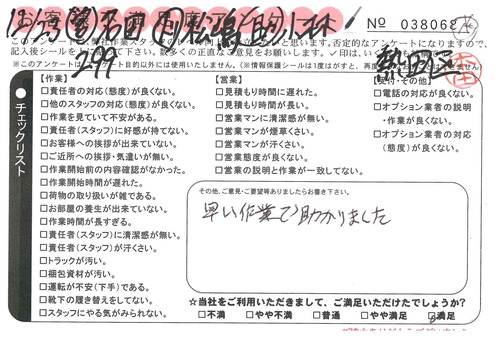 No 038068
記入後シールに
※このアンケートはアンケート目的以外には使用いたしません。(※情報保護シールは1度はがすと、再度
熱田区
299
チェックリスト
【作業】
□責任者の対応(態度)が良くない。
□他のスタッフの対応(態度)が良くない。
□作業を見ていて不安がある。
□責任者(スタッフ)に好感が持てない。
□お客様への挨拶が出来ていない。
□ご近所への挨拶・気遣いが無い。
□作業開始前の内容確認がなかった。
□作業開始時間が遅れた。
□荷物の取り扱いが雑である。
□お部屋の養生が出来ていない。
□作業時間が長すぎる。
□責任者(スタッフ)に清潔感が無い。
□責任者(スタッフ)が汗くさい。
□トラックが汚い。
□梱包資材が汚い。
□運転が不安(下手)である。
□靴下の履き替えをしてない。
□スタッフにやる気がみられない。
【営業】
□見積もり時間に遅れた。
□見積もり時間が長い。
□営業マンに清潔感が無い。
□営業マンが煙草くさい。
□営業マンが汗くさい。
□営業態度が良くない。
□営業の説明と作業が一致してない。
【受付・その他】
□電話の対応が良くない。
□オプション業者の説明
・作業が良くない。
□オプション業者の対応
(態度)が良くない。
その他、ご意見・ご要望等ありましたらお書き下さい。
早い作業で助かりました
☆当社をご利用いただきまして、ご満足いただけたでしょうか?
□不満 □やや不満 □普通 □やや満足 □満足